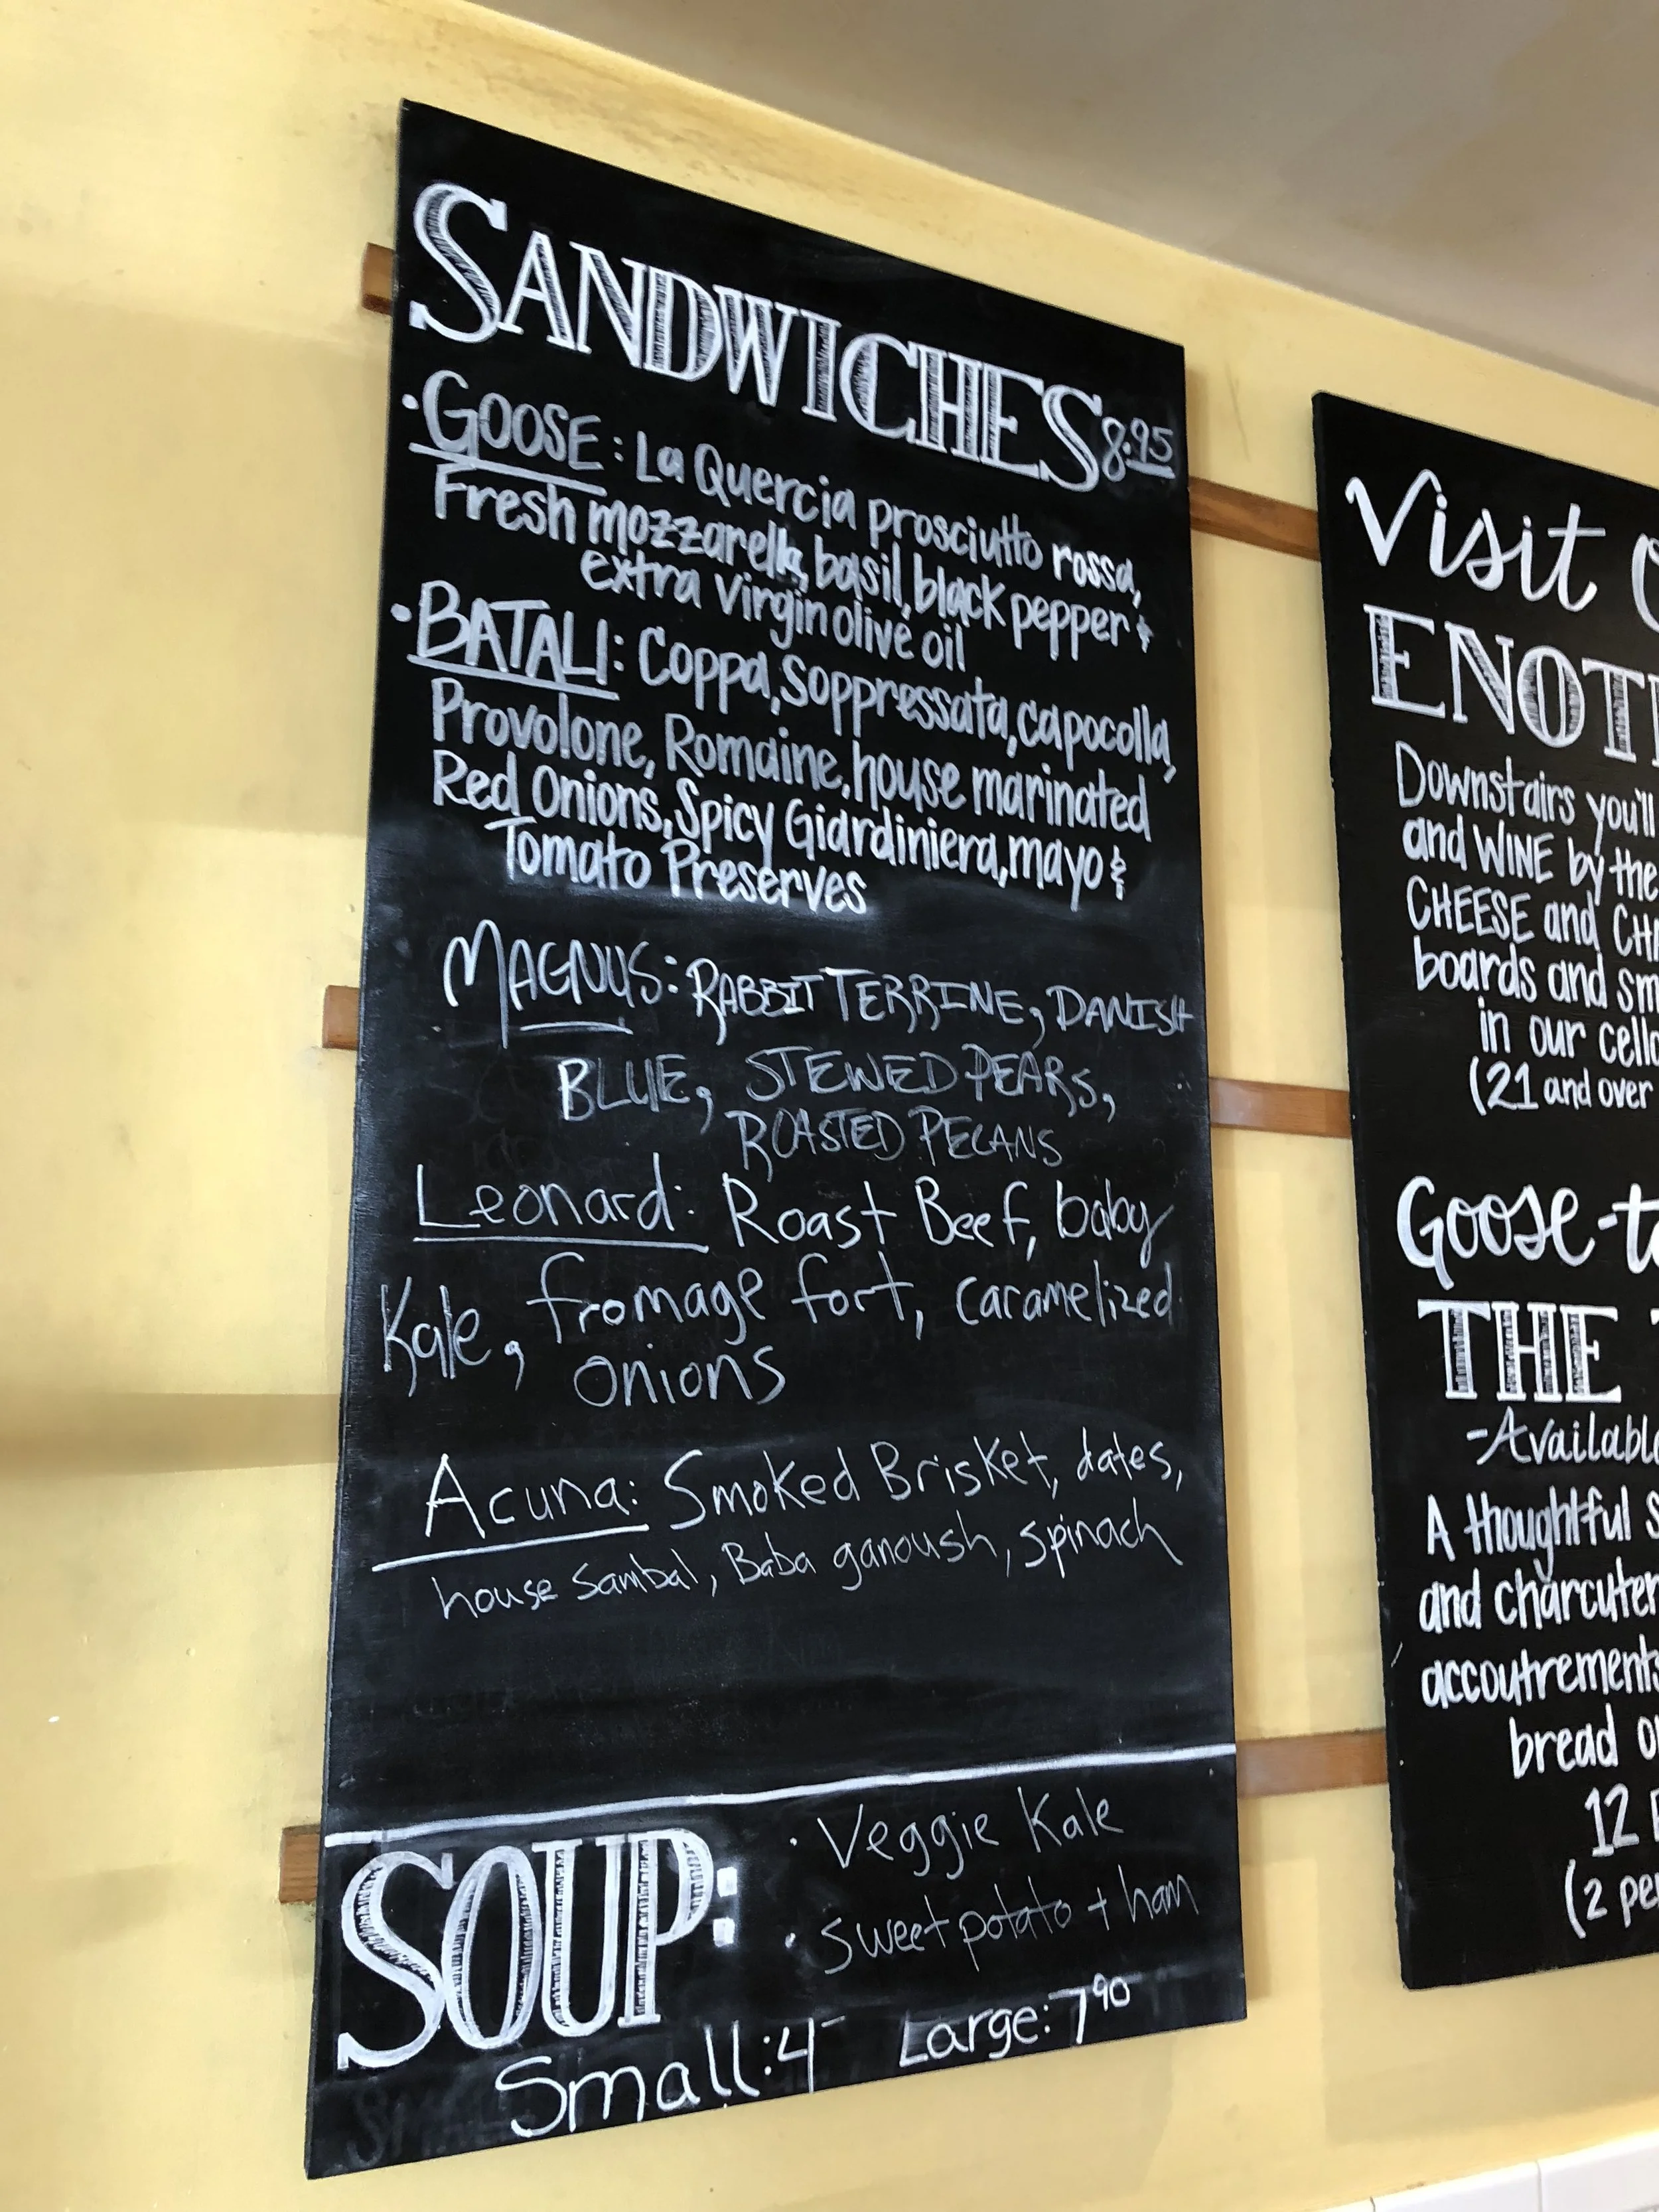 SANDWICHES 8.95
• GOOSE: La Quercia prosciutto rossa,
Fresh mozzarella, basil, black pepper &
extra virgin olive oil
• BATALI: Coppa, soppressata, capocolla,
Provolone, Romaine, house marinated
Red Onions, Spicy Giardiniera, mayo &
Tomato Preserves
MAGNUS: RABBIT TERRINE, DANISH
BLUE, STEWED PEARS,
ROASTED PECANS
Leonard: Roast Beef, baby
Kale, fromage fort, caramelized
onions
Acuna: Smoked Brisket, dates,
house Sambal, Baba ganoush, spinach
SOUP:
• Veggie Kale
• sweet potato + ham
Small: 4- Large: 7 90
Visit
ENOT
Downstairs you'll
and WINE by the
CHEESE and CHA
boards and sm
in our cell
(21 and over
Goose-t
THE
- Available
A thoughtful s
and charcuter
accoutrements
bread o
12
(2 pe